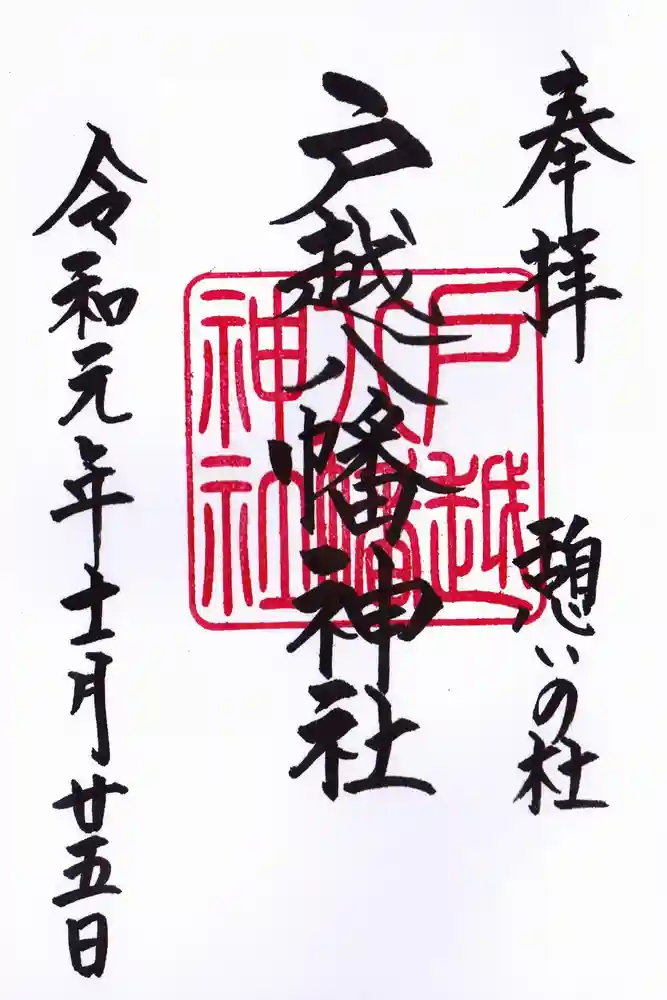 奉拝
憩いの杜
戸越八幡神社
戸越
八幡
神社
令和元年十一月廿五日